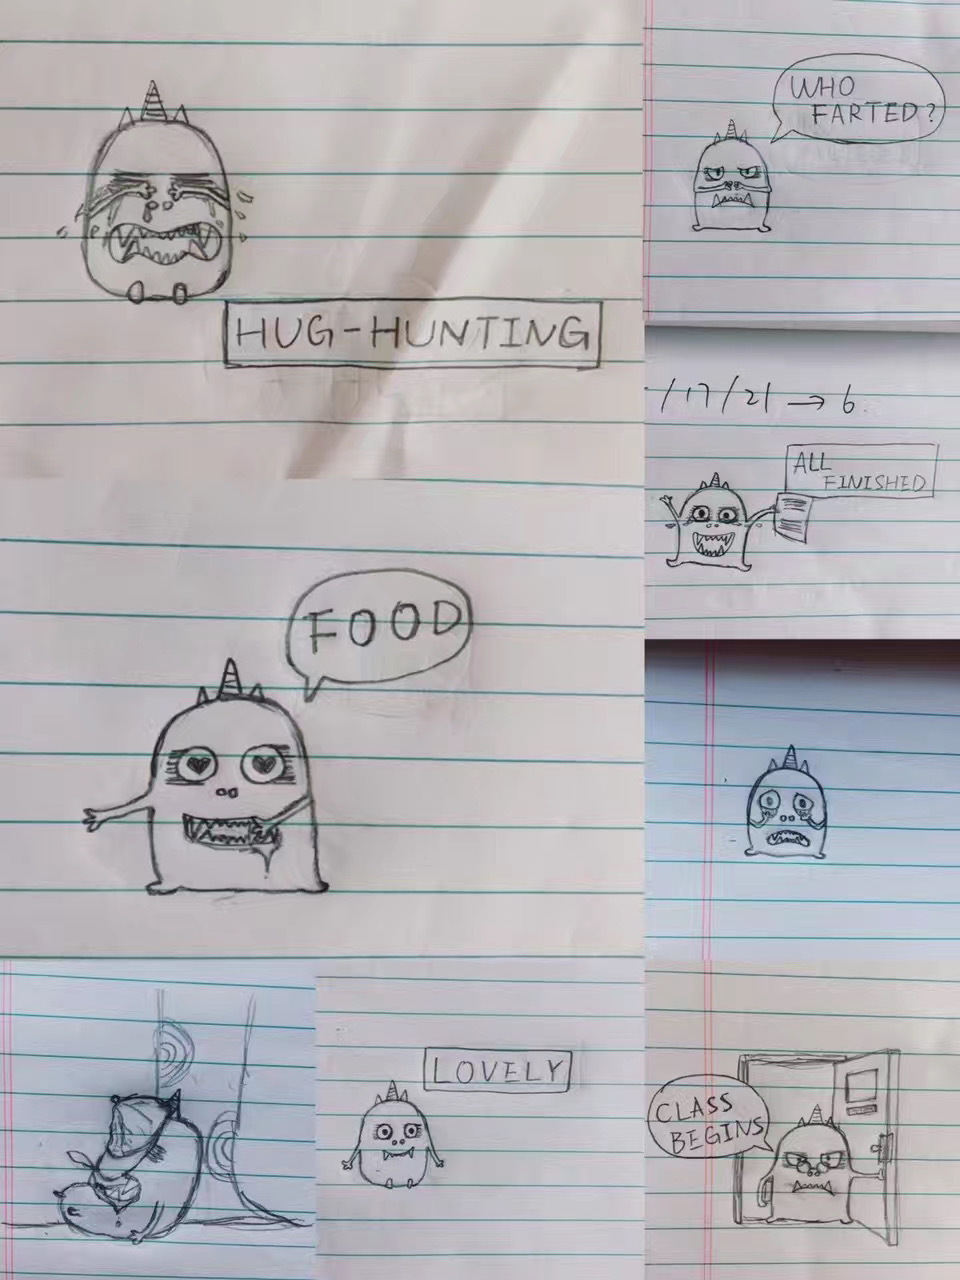 HUG-HUNTING
WHO
FARTED?
/17/21 → 6
ALL
FINISHED
FOOD
LOVELY
CLASS
BEGINS